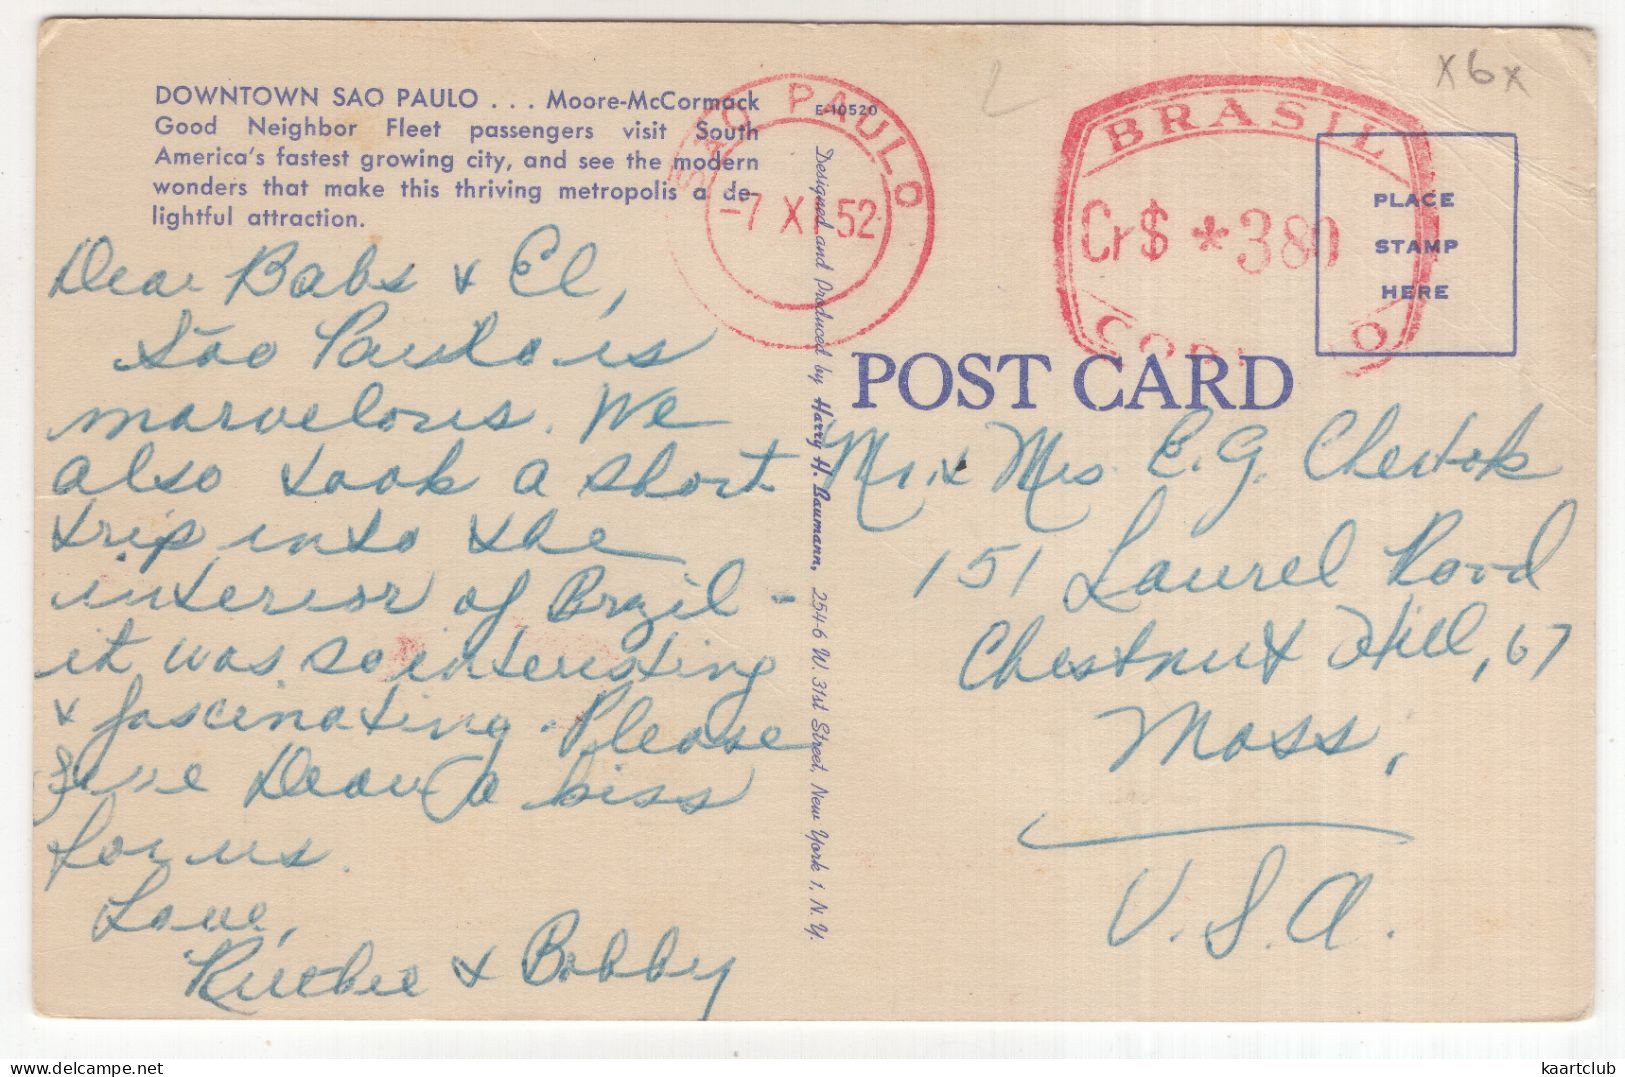 DOWNTOWN SAO PAULO . . . Moore-McCormack
Good Neighbor Fleet passengers visit South
America's fastest growing city, and see the modern
wonders that make this thriving metropolis a de-
lightful attraction.
Dear Babs & El,
São Paulo is
marvelous. We
also took a short
trip into the
interior of Brazil -
it was so interesting
& fascinating. Please
give Dear a kiss
for us.
Love,
Ruthie & Bobby
E-10520
Designed and Produced by Harry H. Baumann, 254-6 W. 31st Street, New York 1, N. Y.
SAO PAULO
-7 XI 52
BRASIL
Cr$ *380
CORREIO
x6x
PLACE
STAMP
HERE
POST CARD
Mr. & Mrs. E. G. Chertok
151 Laurel Road
Chestnut Hill, 67
Mass.
U.S.A.
kaartclub